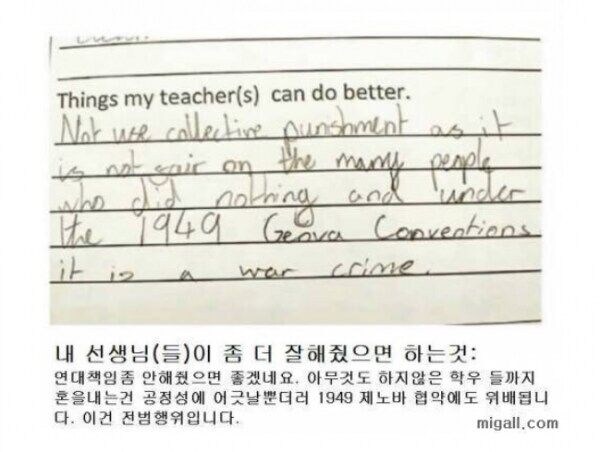 Things my teacher(s) can do better.
Not use collective punishment as it
is not fair on the many people
who did nothing and under
the 1949 Genva Conventions
it is a war crime.
내 선생님(들)이 좀 더 잘해줬으면 하는것:
연대책임좀 안해줬으면 좋겠네요. 아무것도 하지않은 학우 들까지
혼을내는건 공정성에 어긋날뿐더러 1949 제노바 협약에도 위배됩니
다. 이건 전범행위입니다.
migall.com